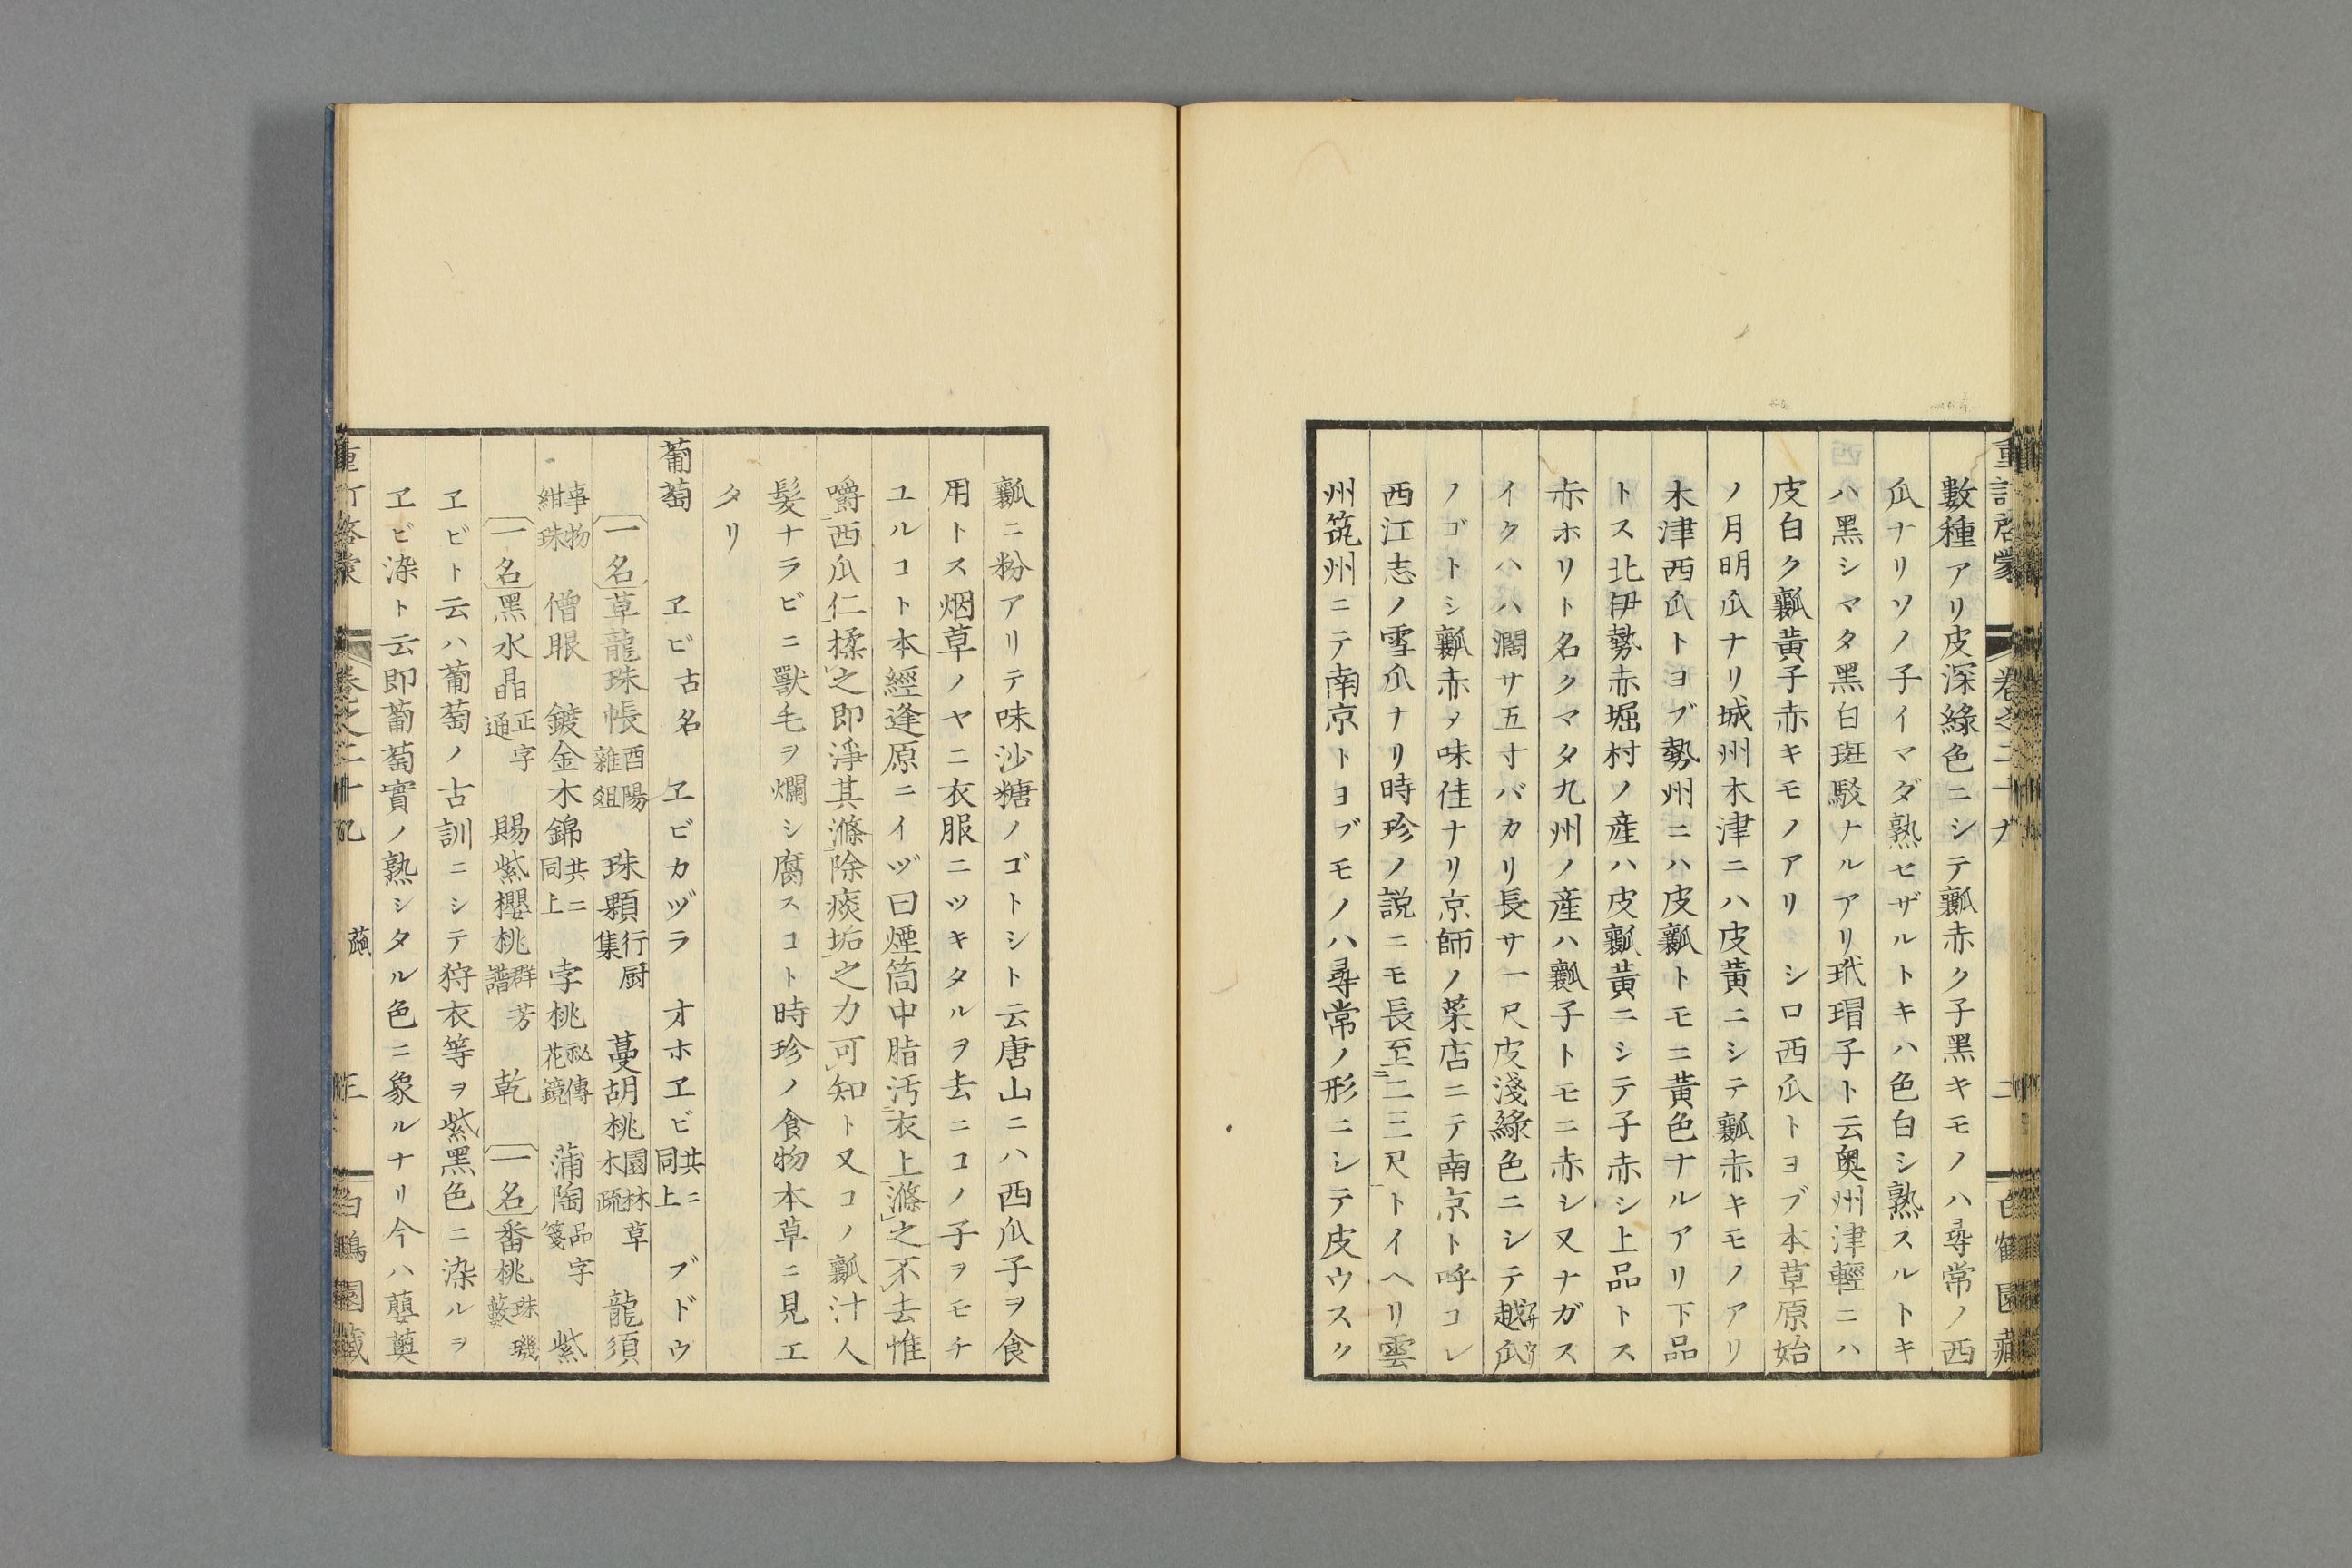 數種アリ皮深綠色ニシテ瓤赤ク子黑キモノハ尋常ノ西
瓜ナリソノ子イマダ熟セザルトキハ色白シ熟スルトキ
ハ黑シマタ黑白斑駁ナルアリ玳瑁子ト云奥州津輕ニハ
皮白ク瓤黄子赤キモノアリ シロ西瓜トヨブ本草原始
ノ月明瓜ナリ城州木津ニハ皮黄ニシテ瓤赤キモノアリ
木津西瓜トヨブ勢州ニハ皮瓤トモニ黄色ナルアリ下品
トス北伊勢赤堀村ノ産ハ皮瓤黄ニシテ子赤シ上品トス
赤ホリト名クマタ九州ノ産ハ瓤子トモニ赤シ又ナガス
イクハハ濶サ五寸バカリ長サ一尺皮淺綠色ニシテ越瓜
ノゴトシ瓤赤ヲ味佳ナリ京師ノ菜店ニテ南京ト呼コレ
西江志ノ雪瓜ナリ時珍ノ説ニモ長至二三尺トイヘリ雲
州筑州ニテ南京トヨブモノハ尋常ノ形ニシテ皮ウスク
瓤ニ粉アリテ味沙糖ノゴトシト云唐山ニハ西瓜子ヲ食
用トス烟草ノヤニ衣服ニツキタルヲ去ニコノ子ヲモチ
ユルコト本經逢原ニイヅ曰煙筒中脂汚衣上滌之不去惟
嚼西瓜仁揉之即淨其滌除痰垢之力可知ト又コノ瓤汁人
髪ナラビニ獸毛ヲ爛シ腐スコト時珍ノ食物本草ニ見エ
タリ
葡萄 ヱビ古名 ヱビカヅラ オホヱビ共ニ同上 ブドウ
一名草龍珠帳酉陽雜俎 珠顆行厨集 蔓胡桃園林草木疏 龍須
事物紺珠 僧眼 鍍金木錦共ニ同上 李桃祕傳花鏡 蒲陶品字箋 紫
一名黑水晶正字通 賜紫櫻桃群芳譜 乾 一名番桃珠璣藪
ヱビト云ハ葡萄ノ古訓ニシテ狩衣等ヲ紫黑色ニ染ルヲ
ヱビ染ト云即葡萄實ノ熟シタル色ニ象ルナリ今ハ蘡薁